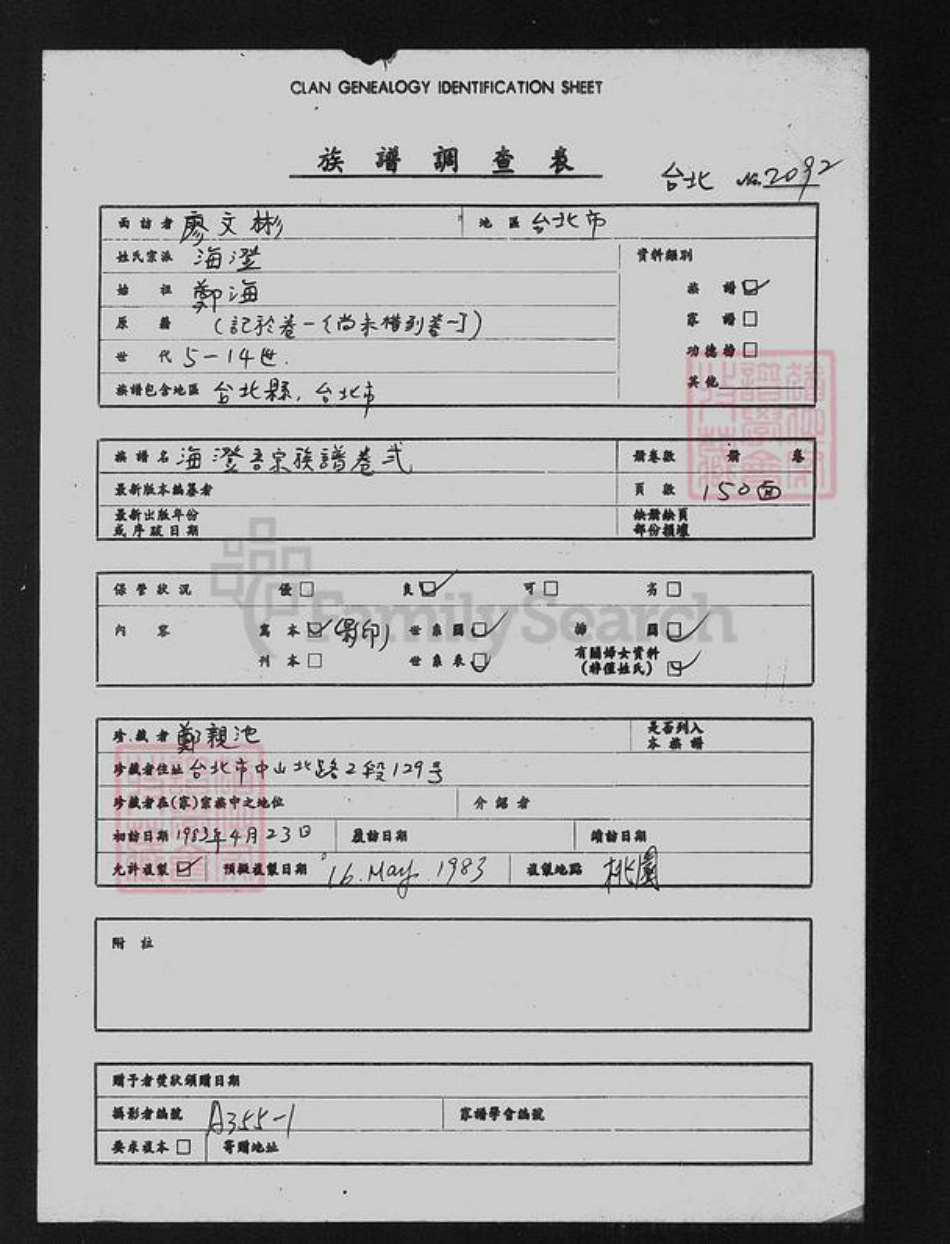 CLAN GENEALOGY IDENTIFICATION SHEET
族譜調查表
台北 No. 2092
面訪者 廖文彬 地區 台北市
姓氏宗派 海澄 資料類別
始祖 鄭海 族譜 ☑
原籍 (記於卷一(尚未借到卷一)) 家譜 □
世代 5-14世. 功德榜 □
族譜包含地區 台北縣, 台北市 其他
族譜名 海澄吾宗族譜卷弍 冊卷數 冊 卷
最新版本編纂者 頁數 150面
最新出版年份 缺冊缺頁
或序跋日期 部份損壞
保管狀況 優 □ 良 ☑ 可 □ 劣 □
內容 寫本 ☑ (影印) 世系圖 ☑ 插圖 ☑
刊本 □ 世系表 ☑ 有關婦女資料
(將僅姓氏) ☑
FamilySearch
珍藏者 鄭親池 是否列入
本族譜
珍藏者住址 台北市中山北路2段129号
珍藏者在(家)宗族中之地位 介紹者
初訪日期 1983年4月23日 覆訪日期 續訪日期
允許複製 ☑ 預擬複製日期 16. May. 1983 複製地點 桃園
附註
贈予者獎狀頒贈日期
攝影者編號 A355-1 家譜學會編號
要求複本 □ 寄贈地址